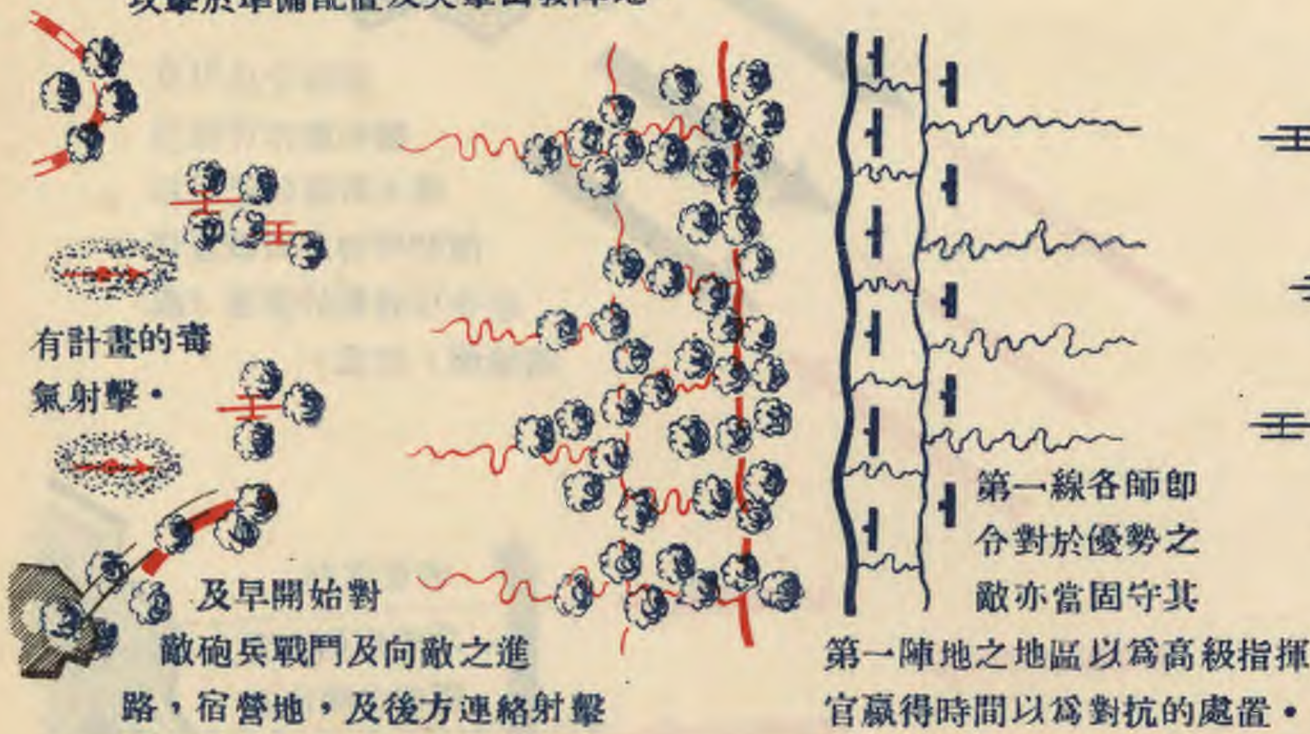 攻擊於準備配置及突擊出發陣地
有計畫的毒
氣射擊・
及早開始對
敵砲兵戰鬥及向敵之進
路，宿營地，及後方連絡射擊
第一線各師即
令對於優勢之
敵亦當固守其
第一陣地之地區以爲高級指揮
官贏得時間以爲對抗的處置・